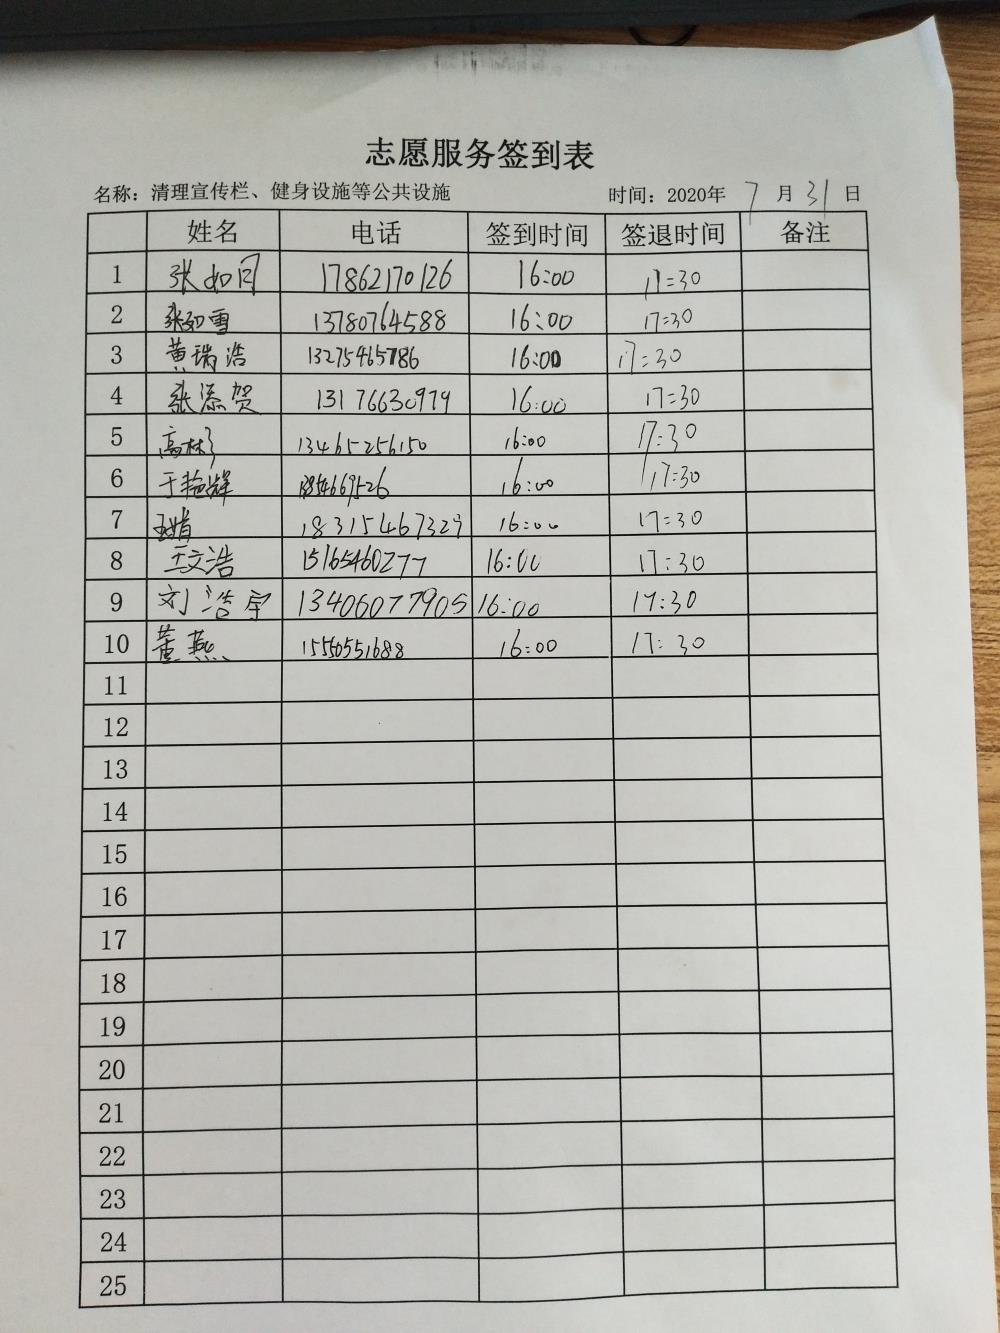 志愿服务签到表
名称：清理宣传栏、健身设施等公共设施 时间：2020年 7 月 31 日
姓名 电话 签到时间 签退时间 备注
1 张如月 17862170126 16:00 17:30
2 张如雪 13780764588 16:00 17:30
3 黄瑞浩 13275465786 16:00 17:30
4 张添贺 13176630979 16:00 17:30
5 高彬 13465256150 16:00 17:30
6 于艳辉 16:00 17:30
7 王娟 18315467329 16:00 17:30
8 王文浩 15165460277 16:00 17:30
9 刘浩宇 13406077905 16:00 17:30
10 董燕 15550551688 16:00 17:30
11
12
13
14
15
16
17
18
19
20
21
22
23
24
25